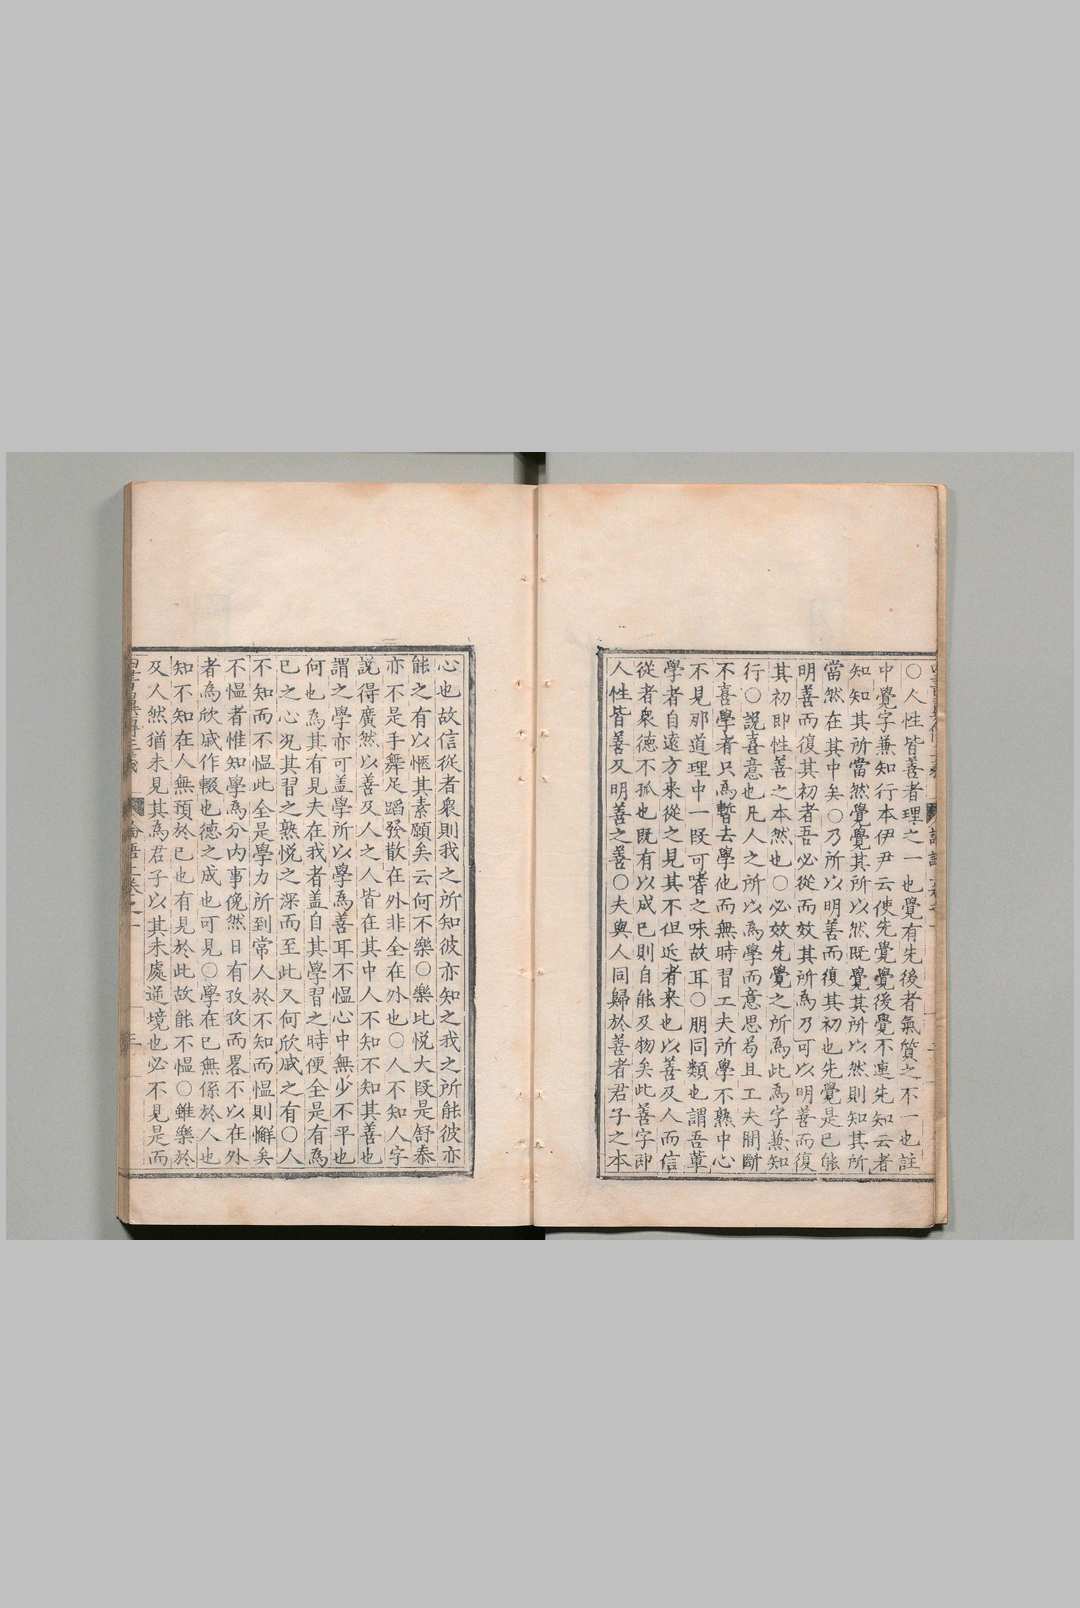 ○人性皆善者理之一也覺有先後者氣質之不一也註
中覺字兼知行本伊尹云使先覺覺後覺不連先知云者
知知其所當然覺覺其所以然旣覺其所以然則知其所
當然在其中矣○乃所以明善而復其初也先覺是已能
明善而復其初者吾必從而效其所爲乃可以明善而復
其初即性善之本然也○必效先覺之所爲此爲字兼知
行○說喜意也凡人之所以爲學而意思苟且工夫間斷
不喜學者只爲暫去學他而無時習工夫所學不熟中心
不見那道理中一旣可嗜之味故耳○朋同類也謂吾輩
學者自遠方来從之見其不但近者来也以善及人而信
從者衆德不孤也旣有以成已則自能及物矣此善字即
人性皆善及明善之善○夫與人同歸於善者君子之本
心也故信從者衆則我之所知彼亦知之我之所能彼亦
能之有以愜其素願矣云何不樂○樂比悅大旣是舒泰
亦不是手舞足蹈發散在外非全在外也○人不知人字
說得廣然以善及人之人皆在其中人不知不知其善也
謂之學亦可盖學所以學爲善耳不慍心中無少不平也
何也爲其有見夫在我者盖自其學習之時便全是有爲
已之心況其習之熟悅之深而至此又何欣戚之有○人
不知而不慍此全是學力所到常人於不知而慍則懈矣
不慍者惟知學爲分内事俛然日有孜孜而畧不以在外
者爲欣戚作輟也德之成也可見○學在已無係於人也
知不知在人無預於已也有見於此故能不慍○雖樂於
及人然猶未見其爲君子以其未處逆境也必不見是而
論語上卷之一